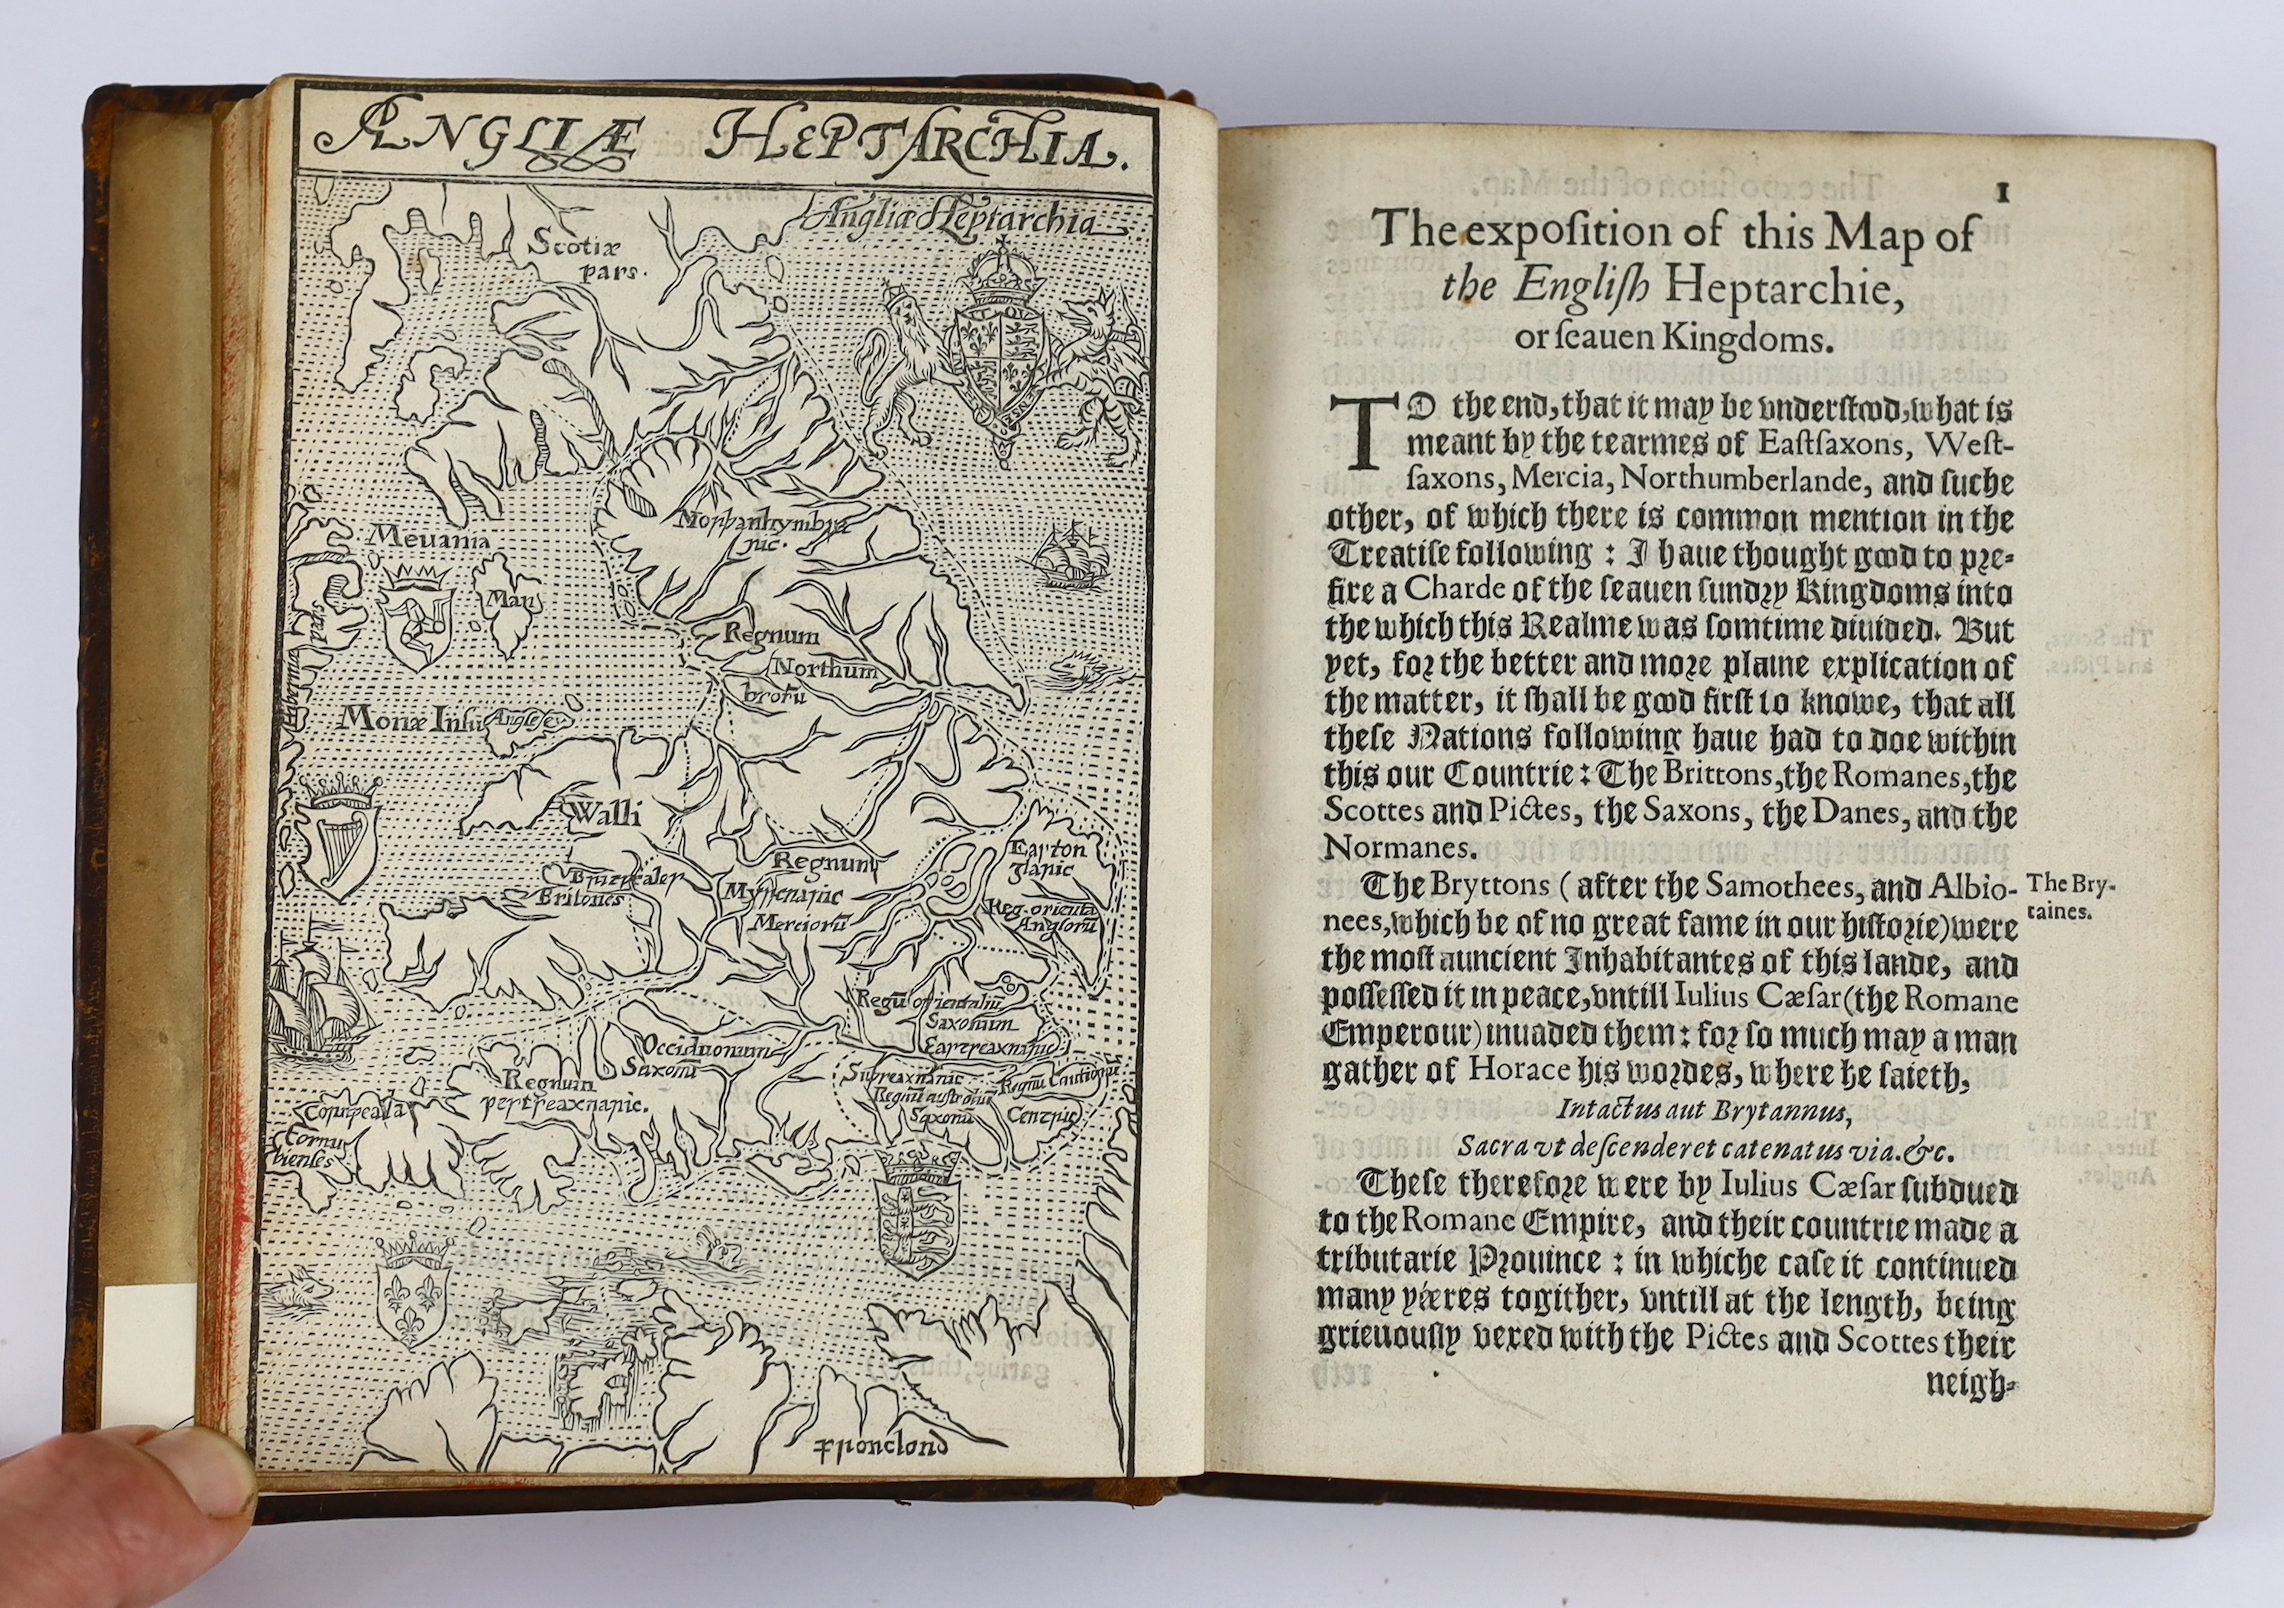 ANGLIÆ HEPTARCHIA.
Angliæ Heptarchia
Scotiæ
pars.
Norþanhymbra
ric.
Meuania
Man
Hiberniæ
pars
Regnum
Northum
brorũ
Monæ Insu
Anglesey
Walli
Regnum
Eaſton
glaric
Britones
Myrcnaric
Merciorũ
Reg. orienta
Anglorũ
Regũ orientaliũ
Saxonum
Eaſtseaxnaric
Occiduorum
Saxonũ
Suþseaxnaric
Regnũ austrorũ
Saxonũ
Regnũ Cantiorum
Centric
Regnum
ƿestseaxnaric.
Cornƿeala
Cornu
bienses
Fronclond
1
The expoſition of this Map of
the Engliſh Heptarchie,
or ſeauen Kingdoms.
TO the end, that it may be vnderſtood, what is
meant by the tearmes of Eaſtſaxons, Weſt-
ſaxons, Mercia, Northumberlande, and ſuche
other, of which there is common mention in the
Treatiſe following : I haue thought good to pre-
fixe a Charde of the ſeauen ſundry Kingdoms into
the which this Realme was ſomtime diuided. But
yet, for the better and more plaine explication of
the matter, it ſhall be good firſt to knowe, that all
theſe Nations following haue had to doe within
this our Countrie : The Brittons, the Romanes, the
Scottes and Pictes, the Saxons, the Danes, and the
Normanes.
The Bryttons ( after the Samothees, and Albio-
nees, which be of no great fame in our hiſtorie) were
The Bry-
taines.
the moſt auncient Inhabitantes of this lande, and
poſſeſſed it in peace, vntill Iulius Cæſar (the Romane
Emperour) inuaded them : for ſo much may a man
gather of Horace his wordes, where he ſaieth,
Intactus aut Brytannus,
Sacra vt deſcenderet catenatus via. &c.
Theſe therefore were by Iulius Cæſar ſubdued
to the Romane Empire, and their countrie made a
tributarie Prouince : in whiche caſe it continued
many yéeres togither, vntill at the length, being
grieuouſly vexed with the Pictes and Scottes their
neigh-